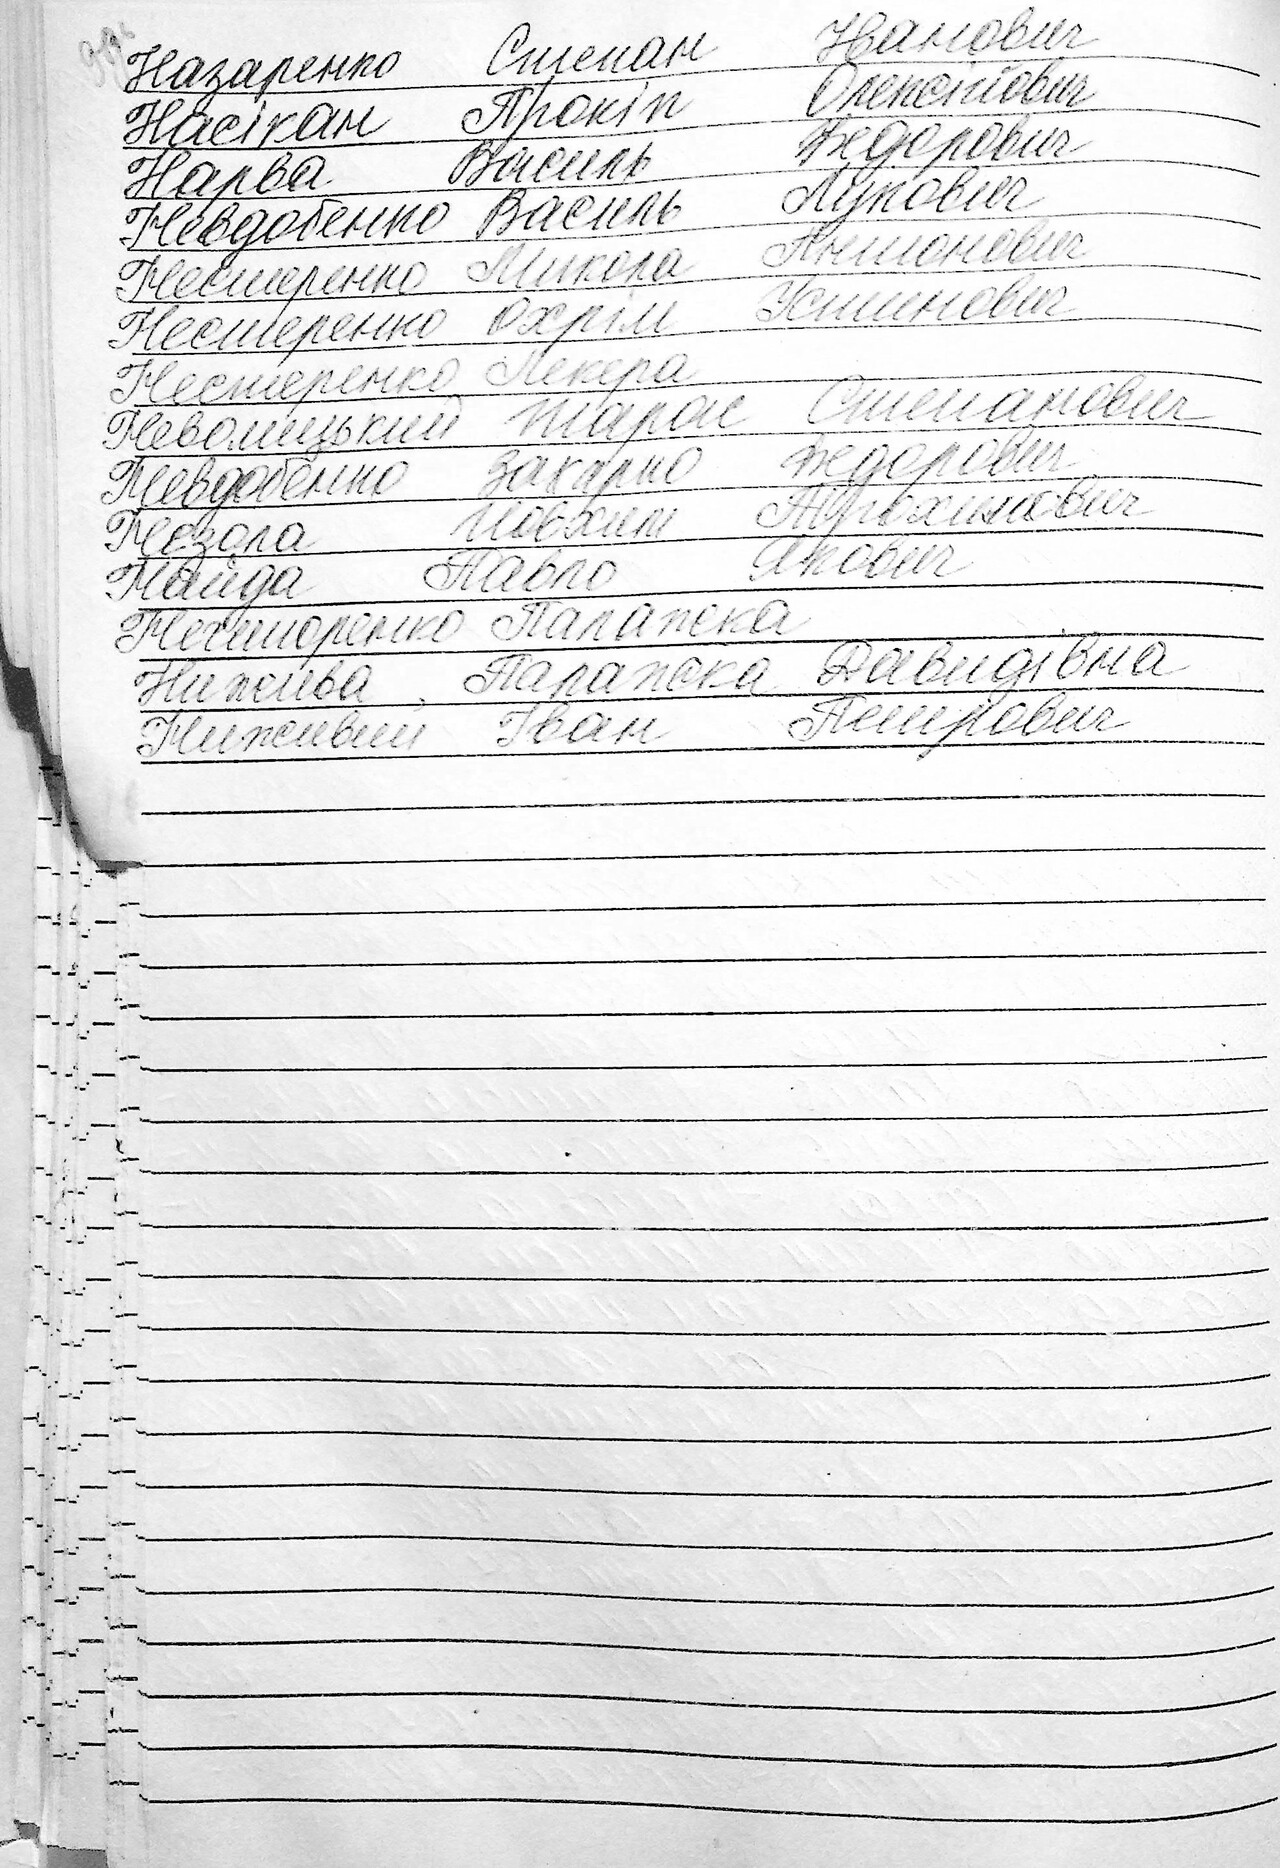 Назаренко Степан Іванович
Насікан Прокіп Олексійович
Нарва Василь Федорович
Невдобенко Василь Лукович
Нестеренко Микола Антонович
Нестеренко Охрім Устинович
Нестеренко Лекера
Неволицький Тарас Степанович
Невдобенко Захарко Федорович
Незола Йовхим
Найда Павло Якович
Нечипоренко Паражка
Нижива Паражка Давидівна
Ниживий Іван Петрович